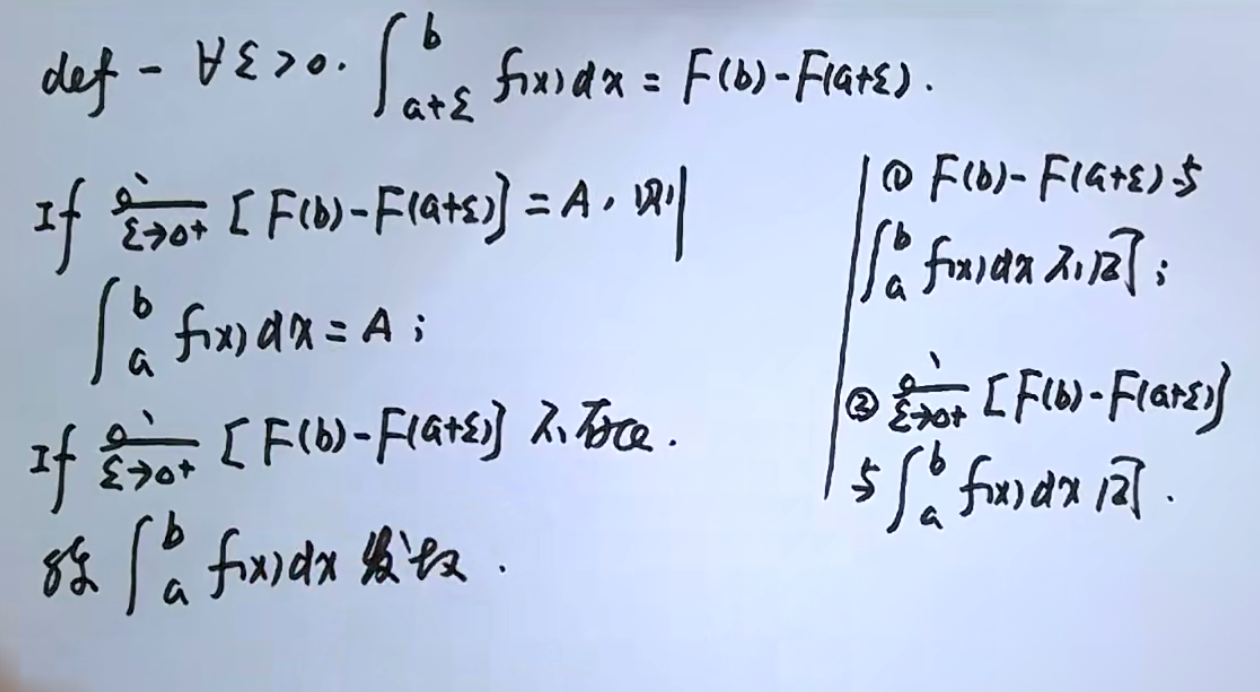 def - ∀ε>0. ∫_{a+ε}^{b} f(x)dx = F(b)-F(a+ε).
If lim_{ε→0+} [F(b)-F(a+ε)] = A, 则
∫_{a}^{b} f(x)dx = A;
If lim_{ε→0+} [F(b)-F(a+ε)] 不存在.
称 ∫_{a}^{b} f(x)dx 发散.
① F(b)-F(a+ε)与
∫_{a}^{b} f(x)dx 不同;
② lim_{ε→0+} [F(b)-F(a+ε)]
与 ∫_{a}^{b} f(x)dx 同.